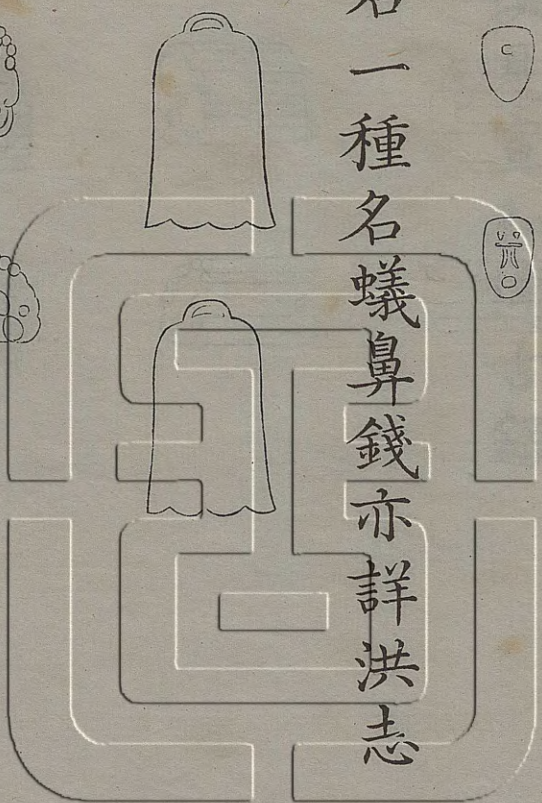 一種名蟻鼻錢亦詳洪志